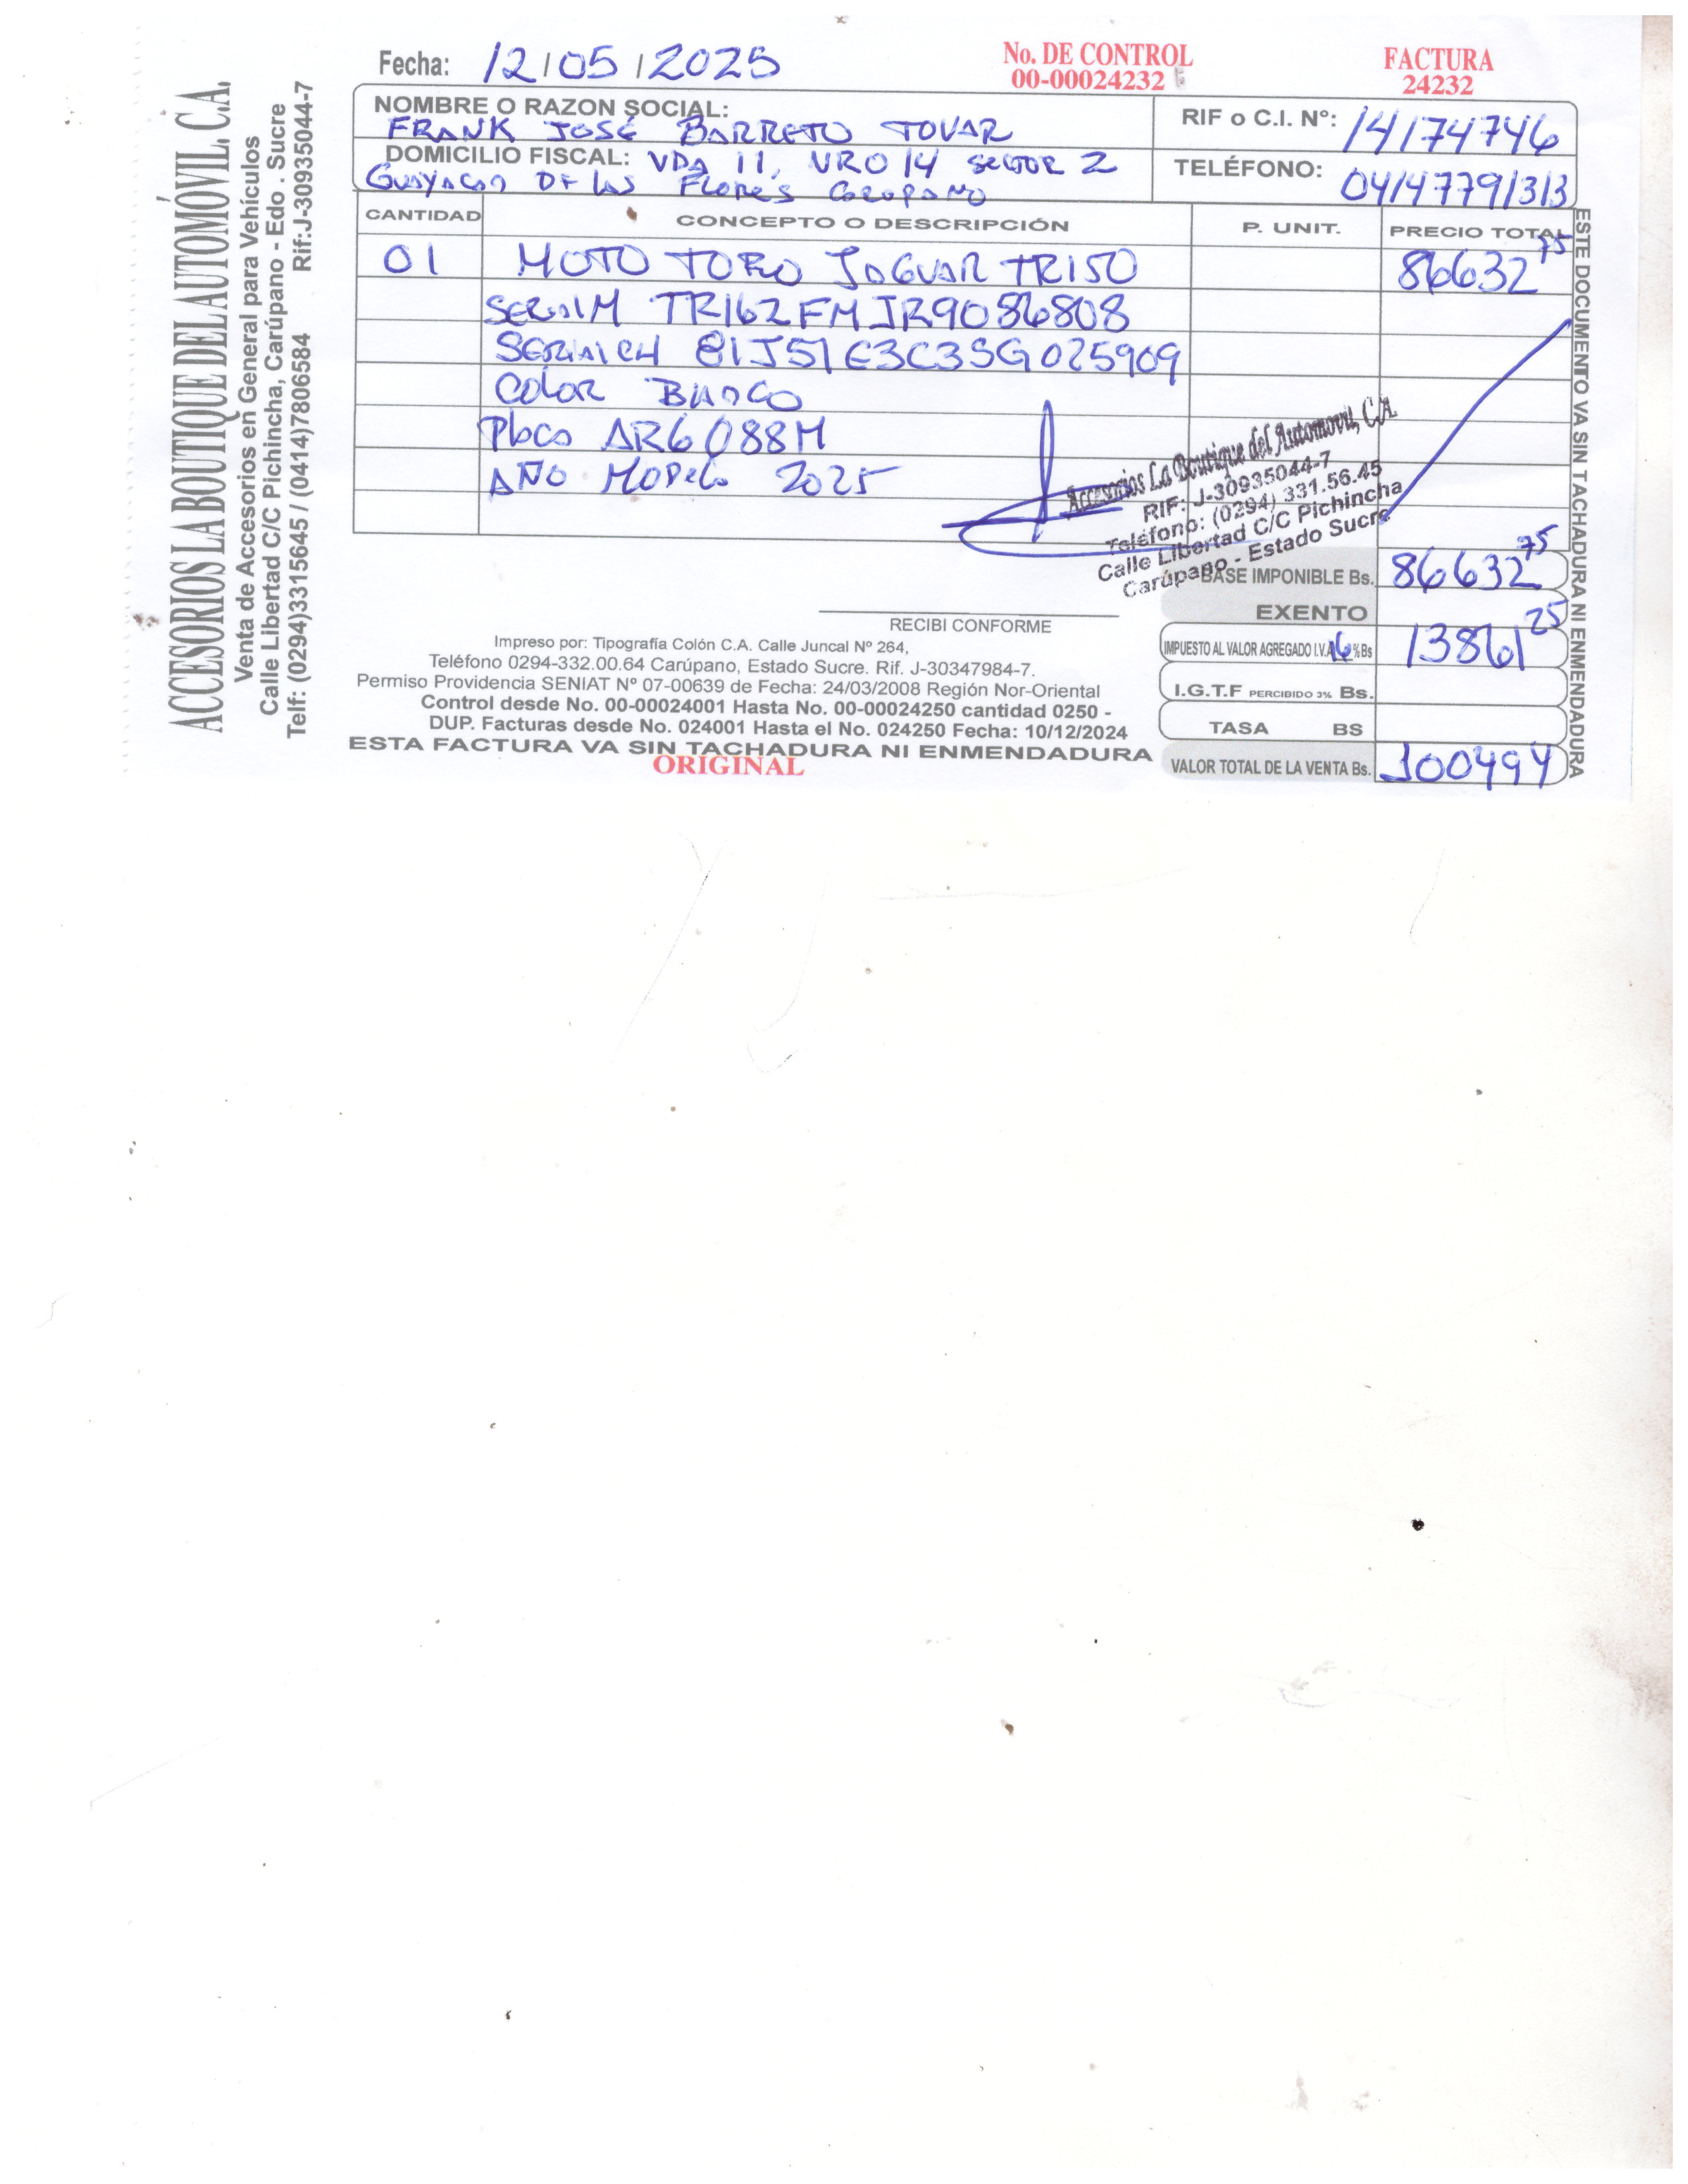 ACCESORIOS LA BOUTIQUE DEL AUTOMÓVIL C.A.
Venta de Accesorios en General para Vehículos
Calle Libertad C/C Pichincha, Carúpano - Edo . Sucre
Telf: (0294)3315645 / (0414)7806584 Rif:J-30935044-7
Fecha: 12/05/2025
No. DE CONTROL
00-00024232
FACTURA
24232
NOMBRE O RAZON SOCIAL:
FRANK JOSÉ BARRETO TOVAR
RIF o C.I. N°: 14174746
DOMICILIO FISCAL: VDA 11, NRO 14 SECTOR 2
GUAYACAN DE LAS FLORES CARUPANO
TELÉFONO: 04147791313
CANTIDAD CONCEPTO O DESCRIPCIÓN P. UNIT. PRECIO TOTAL
01 MOTO TORO JAGUAR TR150 86632 75
SERIALM TR162FMJR9086808
SERIALCH 81J51E3C3SG025909
COLOR BLANCO
Placa AR6088M
AÑO MODELO 2025
Accesorios La Boutique del Automovil, C.A.
RIF: J-30935044-7
Teléfono: (0294) 331.56.45
Calle Libertad C/C Pichincha
Carúpano - Estado Sucre
BASE IMPONIBLE Bs. 86632 75
EXENTO
IMPUESTO AL VALOR AGREGADO I.V.A 16 % Bs 13861 25
I.G.T.F PERCIBIDO 3% Bs.
TASA BS
VALOR TOTAL DE LA VENTA Bs. 100494
RECIBI CONFORME
Impreso por: Tipografía Colón C.A. Calle Juncal Nº 264,
Teléfono 0294-332.00.64 Carúpano, Estado Sucre. Rif. J-30347984-7.
Permiso Providencia SENIAT Nº 07-00639 de Fecha: 24/03/2008 Región Nor-Oriental
Control desde No. 00-00024001 Hasta No. 00-00024250 cantidad 0250 -
DUP. Facturas desde No. 024001 Hasta el No. 024250 Fecha: 10/12/2024
ESTA FACTURA VA SIN TACHADURA NI ENMENDADURA
ORIGINAL
ESTE DOCUMENTO VA SIN TACHADURA NI ENMENDADURA